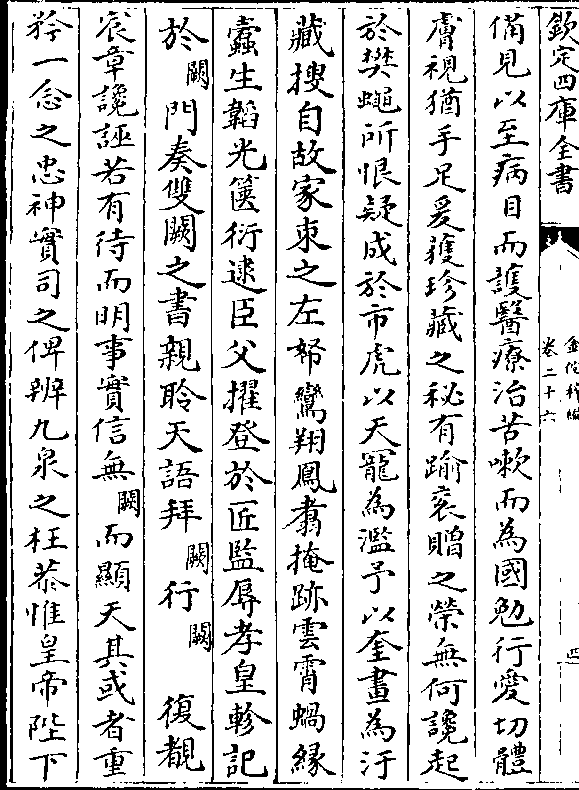 欽定四庫全書
金佗稡編
卷二十六
四
備見以至病目而護醫療治苦嗽而為國勉行愛切體
膚視猶手足爰獲珍藏之秘有踰衮贈之榮無何讒起
於樊蠅所恨疑成於市虎以天寵為濫予以奎畫為汙
藏搜自故家束之左帑鸞翔鳳翥掩跡雲霄蝸縁
蠹生韜光篋衍逮臣父擢登於匠監辱孝皇軫記
於闕門奏雙闕之書親聆天語拜闕行闕復覩
宸章讒誣若有待而明事實信無闕而顯天其或者重
矜一念之忠神實司之俾辨九泉之枉恭惟皇帝陛下